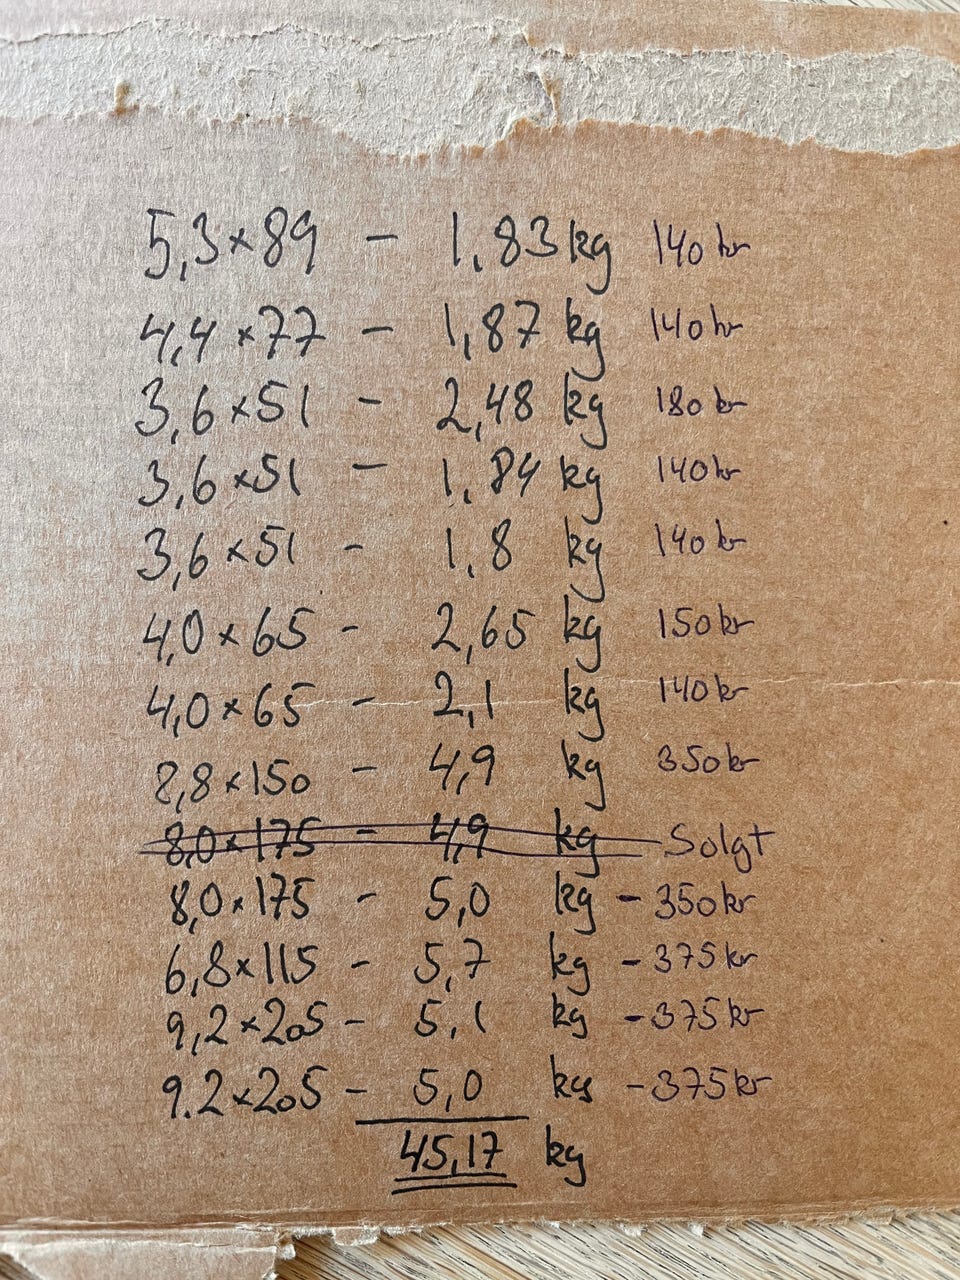 5,3×89 - 1,83 kg 140 kr
4,4×77 - 1,87 kg 140 kr
3,6×51 - 2,48 kg 180 kr
3,6×51 - 1,84 kg 140 kr
3,6×51 - 1,8 kg 140 kr
4,0×65 - 2,65 kg 150 kr
4,0×65 - 2,1 kg 140 kr
8,8×150 - 4,9 kg 350 kr
8,0×175 - 4,9 kg - Solgt
8,0×175 - 5,0 kg - 350 kr
6,8×115 - 5,7 kg - 375 kr
9,2×205 - 5,1 kg - 375 kr
9.2×205 - 5,0 kg - 375 kr
45,17 kg